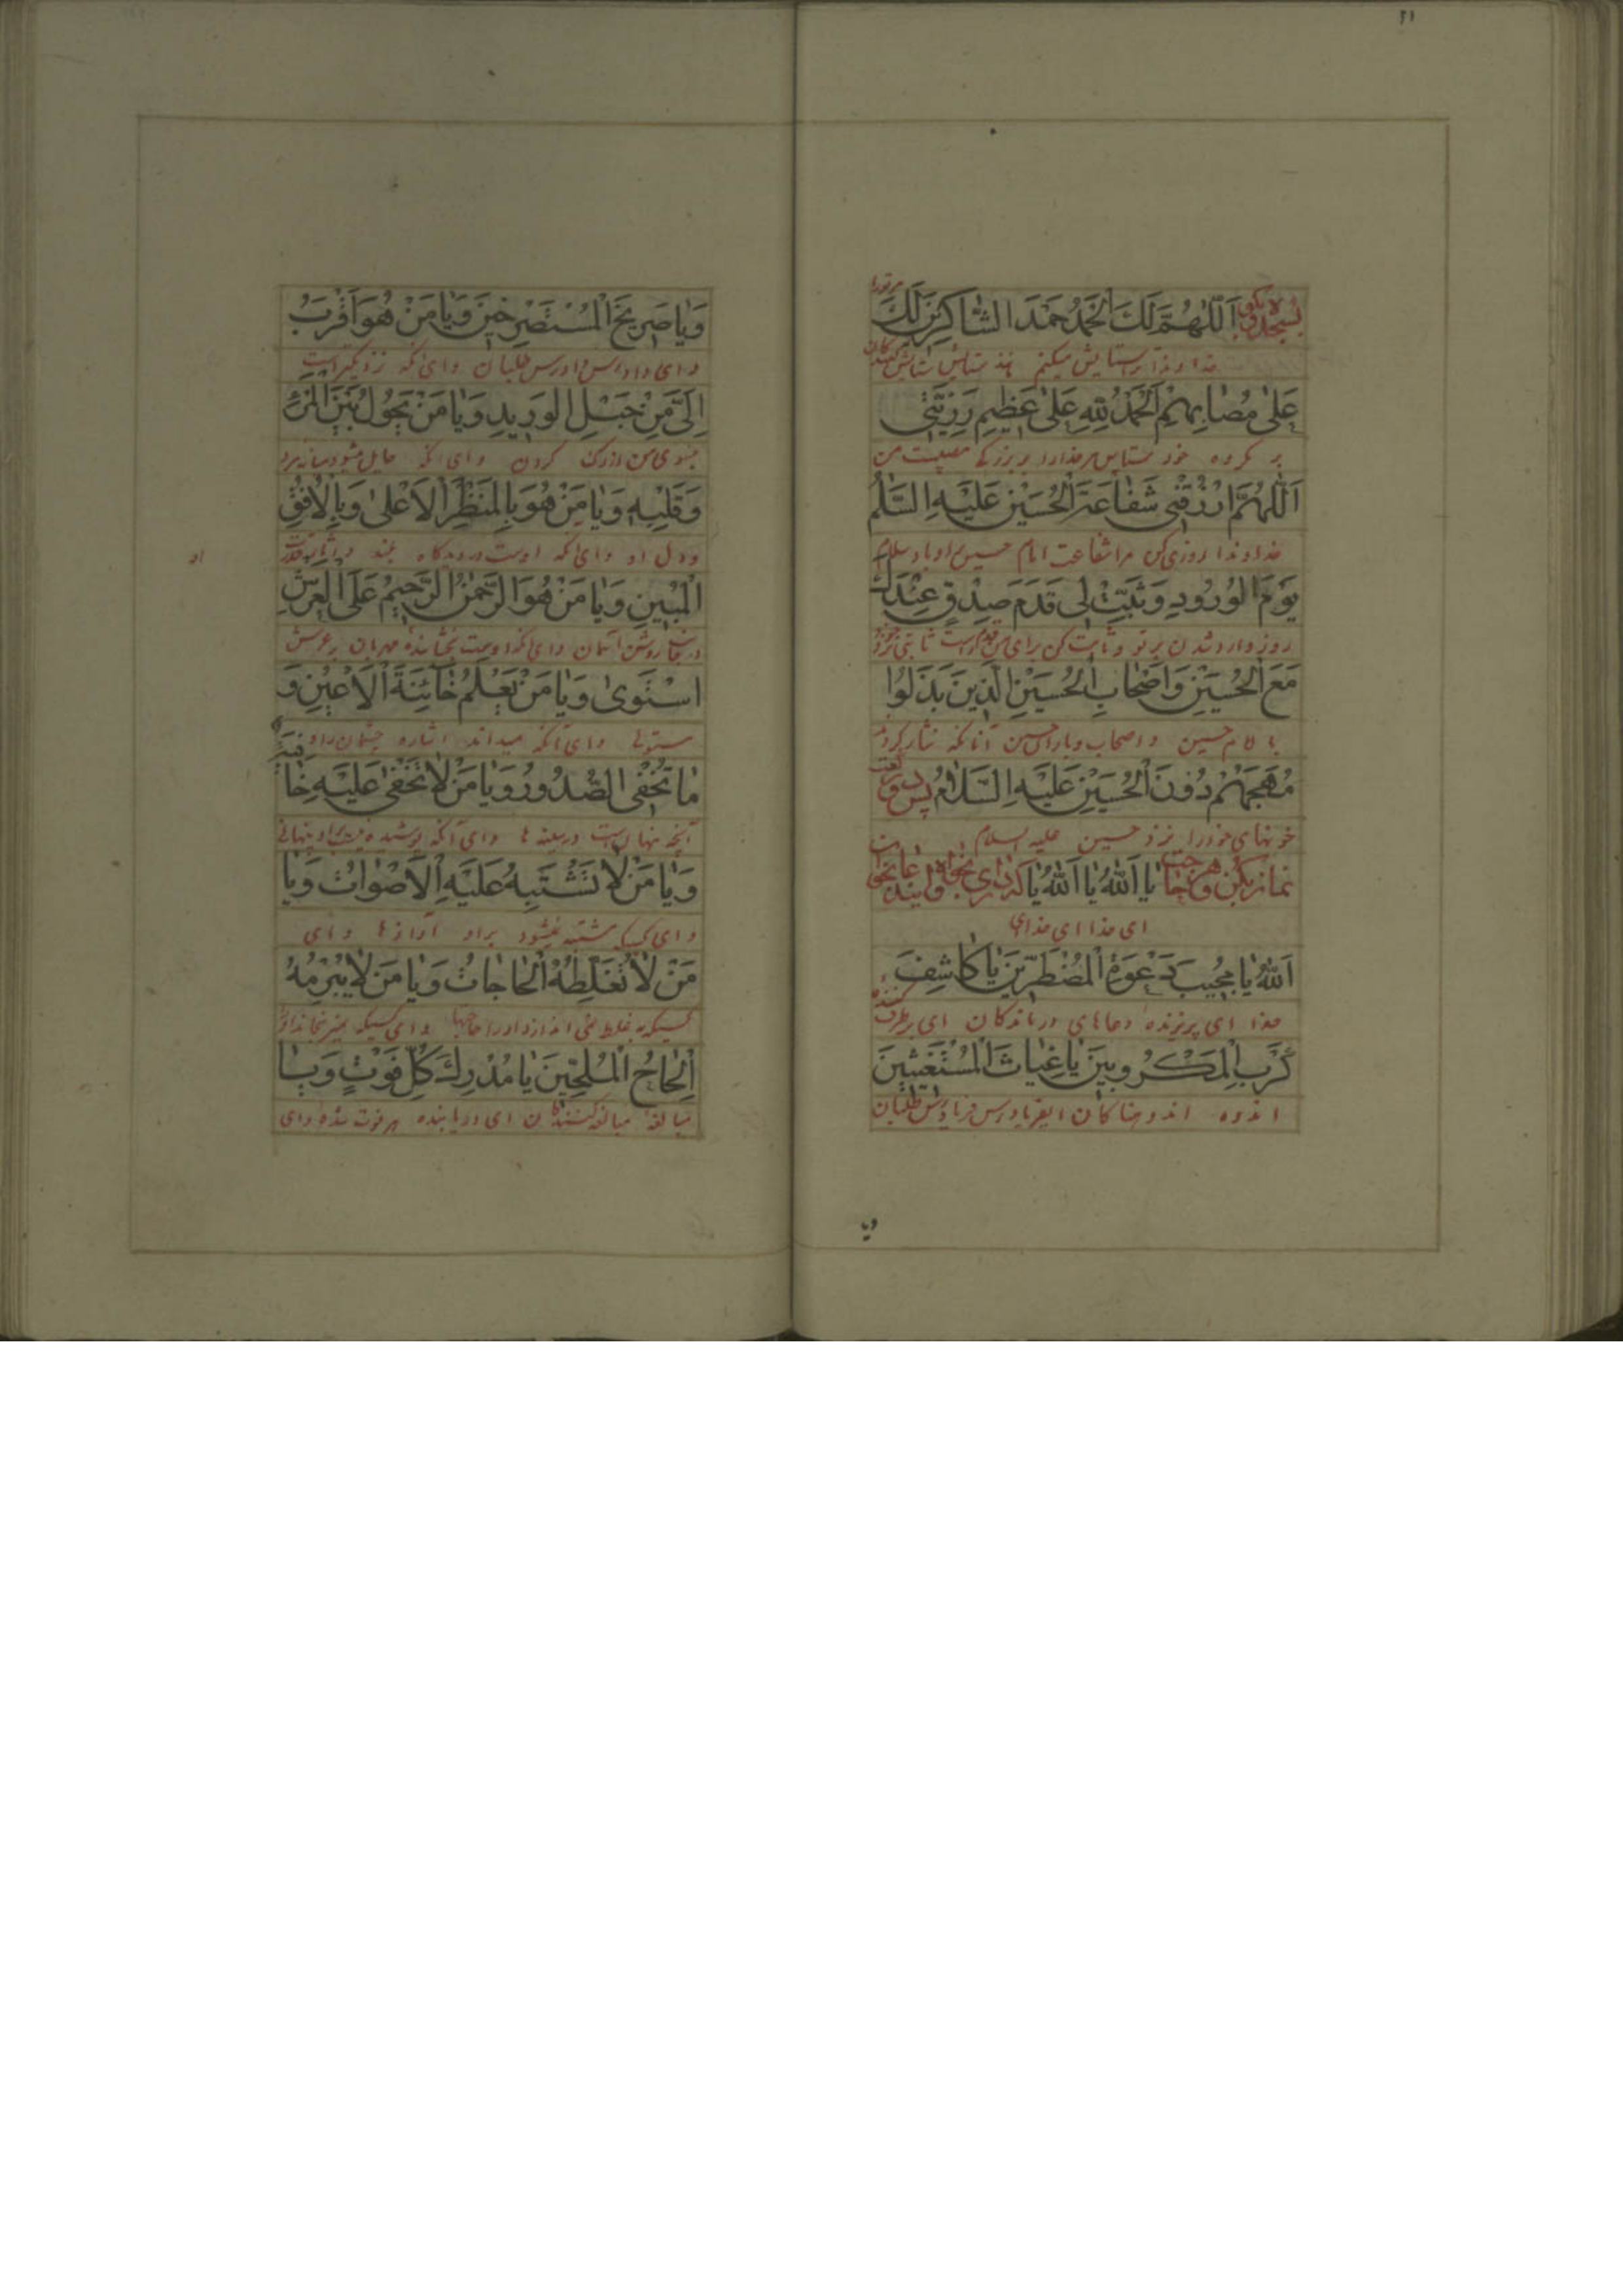 ۲۱
بسجده رو بگو اَللّهُمَّ لَكَ الْحَمْدُ حَمْدَ الشّاكِرينَ لَكَ
خداوندا ترا ستایش میکنم مانند ستایش ستایش کنندگان
عَلى مُصابِهِمْ اَلْحَمْدُ لِلّهِ عَلى عَظيمِ رَزِيَّتي
بر کرده خود ستایش مر خدا را بر بزرگی مصیبت من
اَللّهُمَّ ارْزُقْني شَفاعَةَ الْحُسَيْنِ عَلَيْهِ السَّلمُ
خداوندا روزی کن مرا شفاعت امام حسین او باد سلام
يَوْمَ الْوُرُودِ وَثَبِّتْ لي قَدَمَ صِدْقٍ عِنْدَكَ
روز وارد شدن بر تو و ثابت کن برای من قدم راست ثابتی نزد
مَعَ الْحُسَيْنِ وَاَصْحابِ الْحُسَيْنِ الَّذينَ بَذَلُوا
با امام حسین و اصحاب و یاران حسین آنانکه نثار کردند
مُهَجَهُمْ دُونَ الْحُسَيْنِ عَلَيْهِ السَّلامُ پس دو رکعت
خونهای خود را نزد حسین علیه السلام
نماز بکن و هر حاجت يا اَللّهُ يا اَللّهُ يا
ای خدا ای خدا ای
اَللّهُ يا مُجيبَ دَعْوَةِ الْمُضْطَرّينَ يا كاشِفَ
خدا ای پذیرنده دعاهای درماندگان ای برطرف کننده
كُرَبِ الْمَكْرُوبينَ يا غِياثَ الْمُسْتَغيثينَ
اندوه اندوهناکان ای فریادرس فریادرس طلبان
ویا
وَيا صَريخَ الْمُسْتَصْرِخينَ وَيا مَنْ هُوَ اَقْرَبُ
و ای دادرس دادرس طلبان و ای آنکه نزدیکتر است
اِلَيَّ مِنْ حَبْلِ الْوَريدِ وَيا مَنْ يَحُولُ بَيْنَ الْمَرْءِ
بسوی من از رگ گردن و ای آنکه حایل میشود میانه مرد
وَقَلْبِهِ وَيا مَنْ هُوَ بِالْمَنْظَرِ الْاَعْلى وَبِالْاُفُقِ
و دل او و ای آنکه اوست در دیدگاه بلند
او
الْمُبينِ وَيا مَنْ هُوَ الرَّحْمنُ الرَّحيمُ عَلَى الْعَرْشِ
روشن آسمان و ای آنکه اوست بخشاینده مهربان بر عرش
اسْتَوى وَيا مَنْ يَعْلَمُ خائِنَةَ الْاَعْيُنِ وَ
مستولی و ای آنکه میداند اشاره چشمان را و
ما تُخْفِي الصُّدُورُ وَيا مَنْ لا تَخْفى عَلَيْهِ خافِيَةٌ
آنچه پنهانست در سینه ها و ای آنکه پوشیده نیست بر او پنهانی
وَيا مَنْ لا تَشْتَبِهُ عَلَيْهِ الْاَصْواتُ وَيا
و ای کسیکه مشتبه نمیشود بر او آوازها و ای
مَنْ لا تُغَلِّطُهُ الْحاجاتُ وَيا مَنْ لا يُبْرِمُهُ
کسیکه به غلط نمی اندازد او را حاجتها و ای کسیکه
اِلْحاحُ الْمُلِحّينَ يا مُدْرِكَ كُلِّ فَوْتٍ وَيا
مبالغه مبالغه کنندگان ای دریابنده هر فوت شده و ای